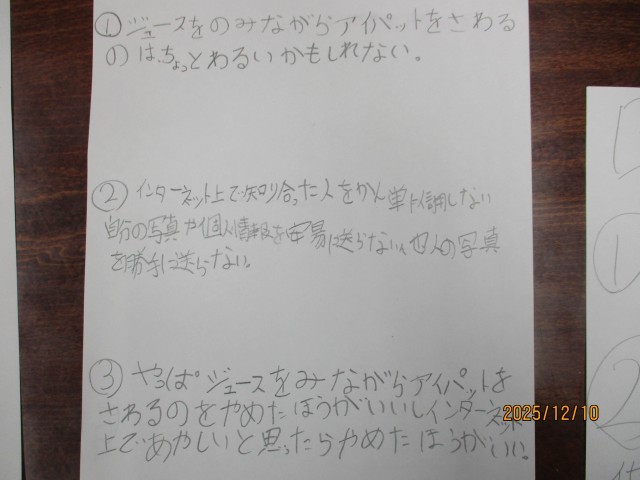 ①ジュースをのみながらアイパットをさわる
のは、ちょっとわるいかもしれない。
②インターネット上で知り合った人をかん単に信用しない
自分の写真や個人情報を安易に送らない、他人の写真
を勝手に送らない。
③やっぱジュースをみながらアイパットを
さわるのをやめたほうがいいしインターネット
上であやしいと思ったらやめたほうがいい。
2025/12/10
①
②